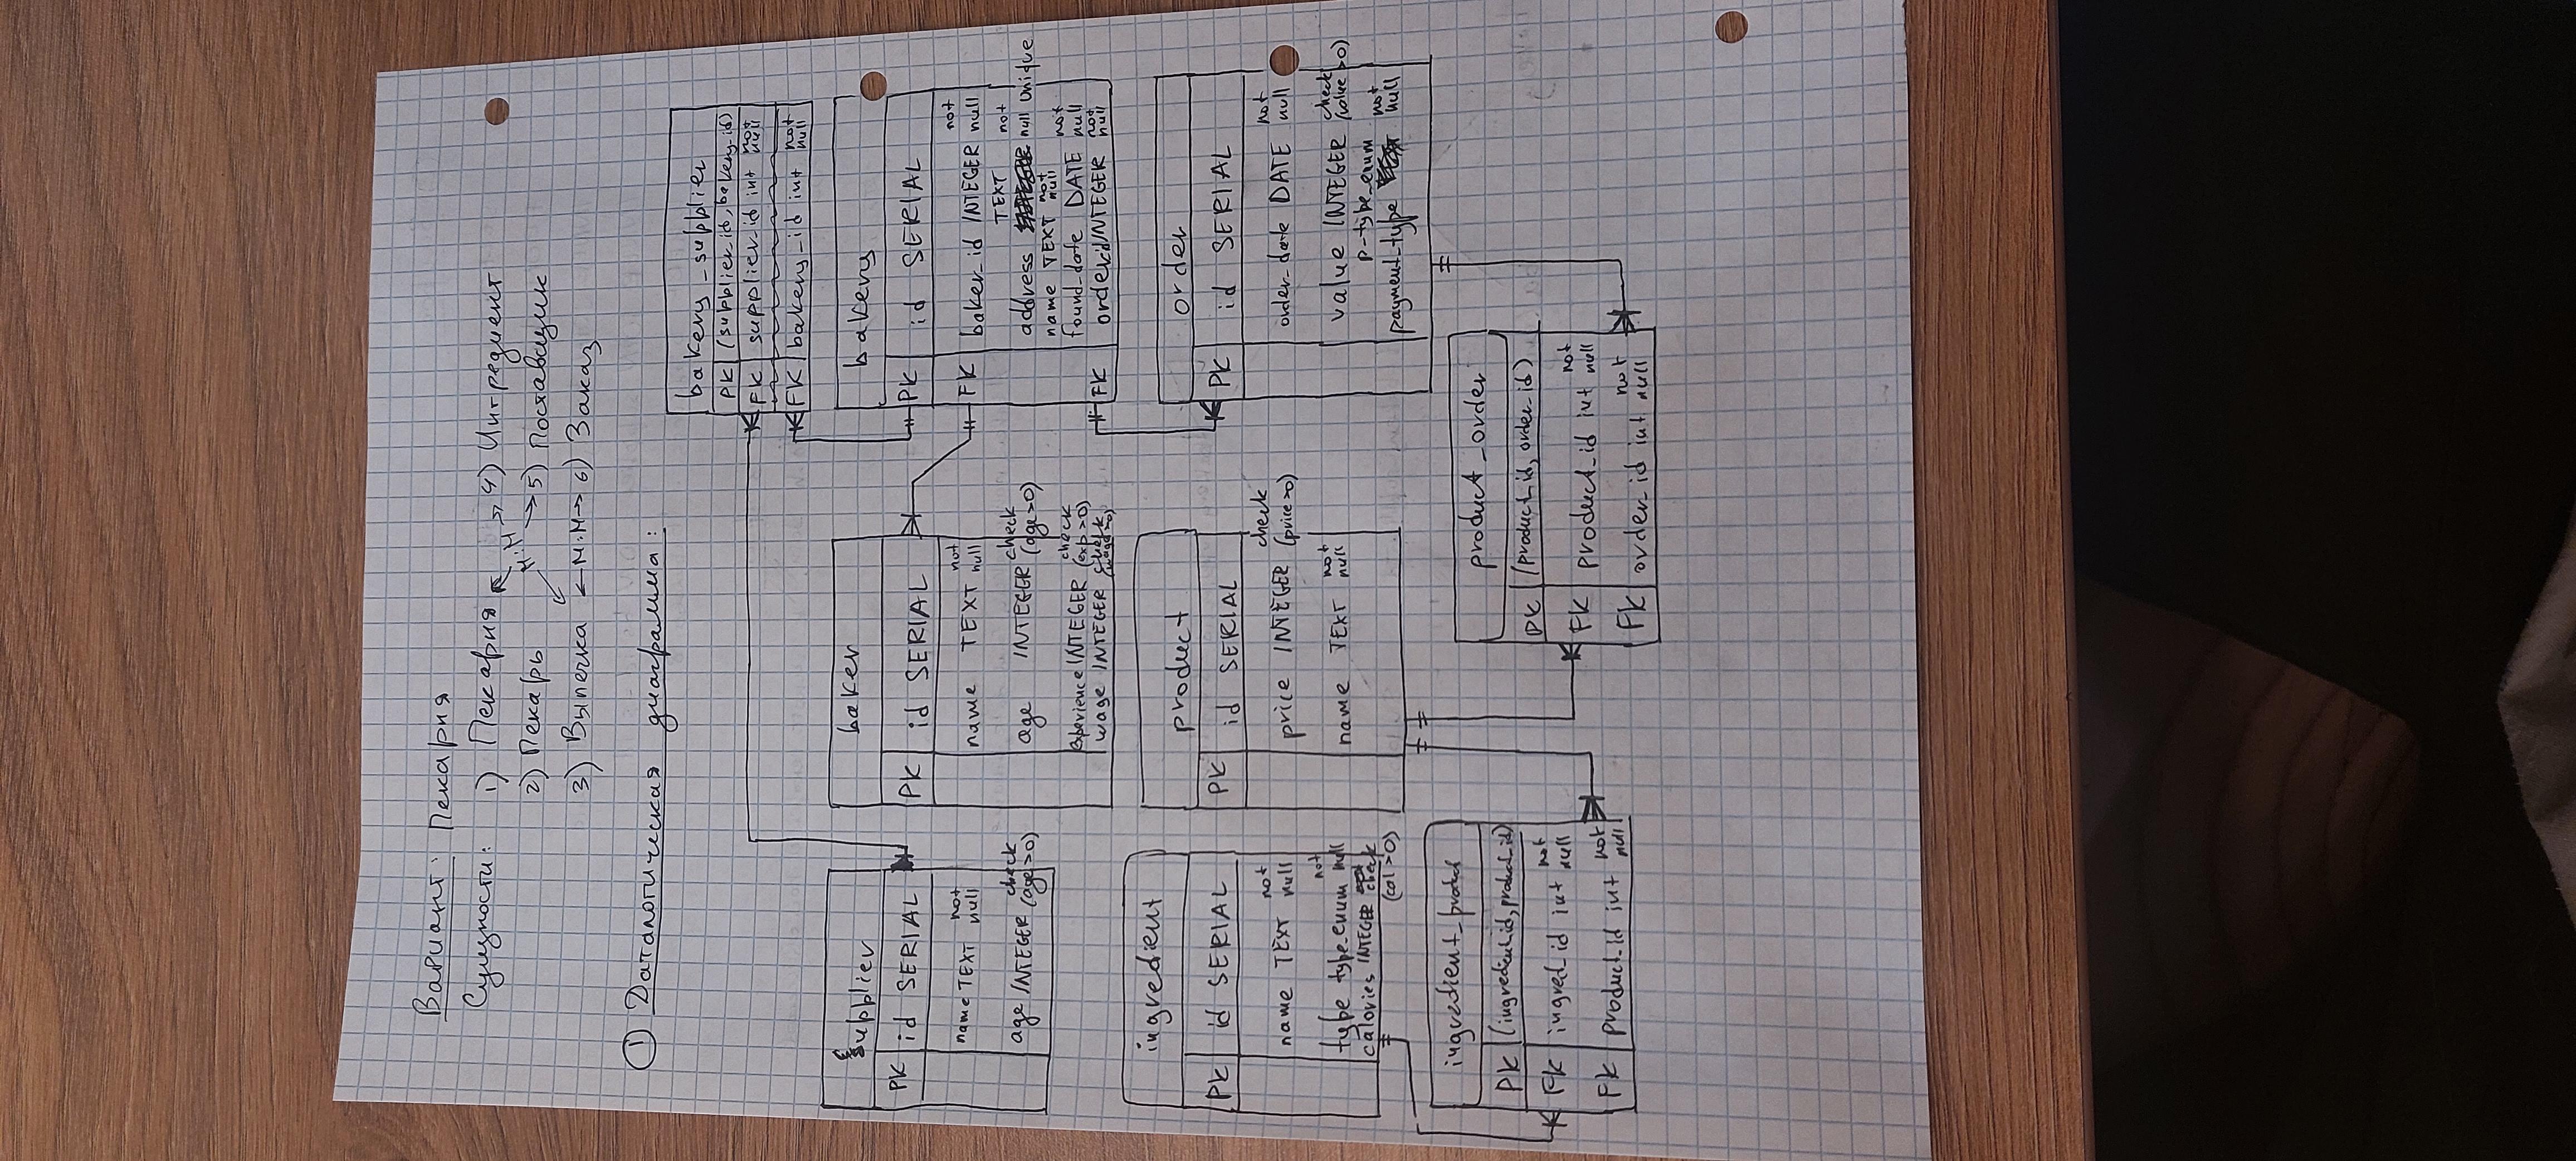 Вариант: Пекарня
Сущности: 1) Пекарня 4) Ингредиент
М:М
2) Пекарь 5) Поставщик
3) Выпечка ←М:М→ 6) Заказ
① Даталогическая диаграмма:
bakery_supplier
PK (supplier_id, bakery_id)
FK supplier_id int not null
FK bakery_id int not null
supplier
PK id SERIAL
name TEXT not null
age INTEGER check (age>0)
baker
PK id SERIAL
name TEXT not null
age INTEGER check (age>0)
experience INTEGER check (exp>0)
wage INTEGER check (wage>0)
bakery
PK id SERIAL
FK baker_id INTEGER not null
address TEXT not null unique
name TEXT not null
found_date DATE not null
FK order_id INTEGER not null
ingredient
PK id SERIAL
name TEXT not null
type type_enum not null
calories INTEGER check (cal>0)
product
PK id SERIAL
price INTEGER check (price>0)
name TEXT not null
order
PK id SERIAL
order_date DATE not null
value INTEGER check (value>0)
payment_type p-type_enum not null
ingredient_product
PK (ingredient_id, product_id)
FK ingred_id int not null
FK product_id int not null
product_order
PK (product_id, order_id)
FK product_id int not null
FK order_id int not null